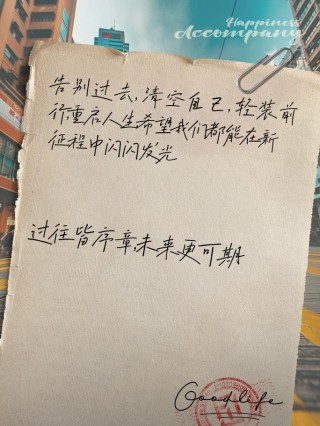 Happiness
Accompany
告别过去,清空自己,轻装前
行重启人生希望我们都能在新
征程中闪闪发光
过往皆序章,未来更可期
Goodlife